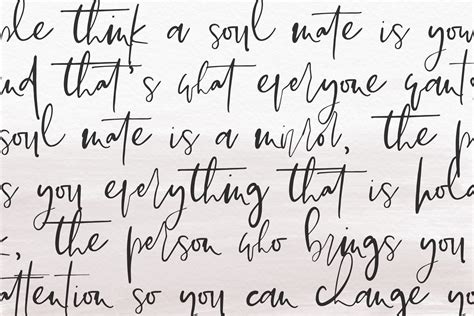 ple think a soul mate is you
nd that's what everyone wants
soul mate is a mirror, the p
s you everything that is hol
, the person who brings you
attention so you can change yo